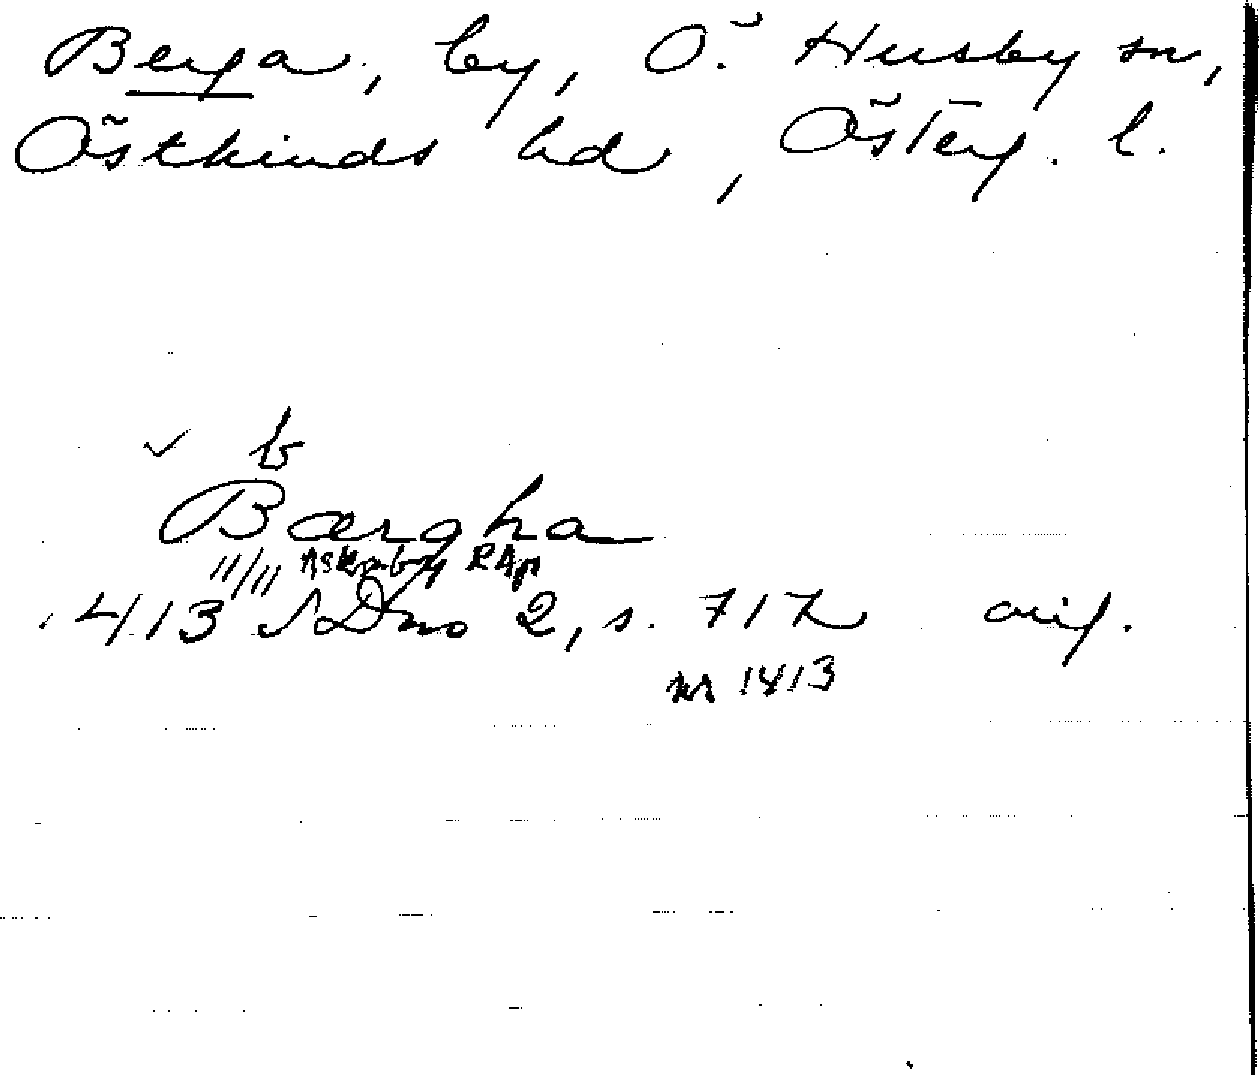 Berga, by, Ö. Husby sn,
Östkinds hd, Österg. l.
✓ b
Bærgha
11/11 Askaby RAp
1413 SDns 2, s. 717 orig.
nr 1413